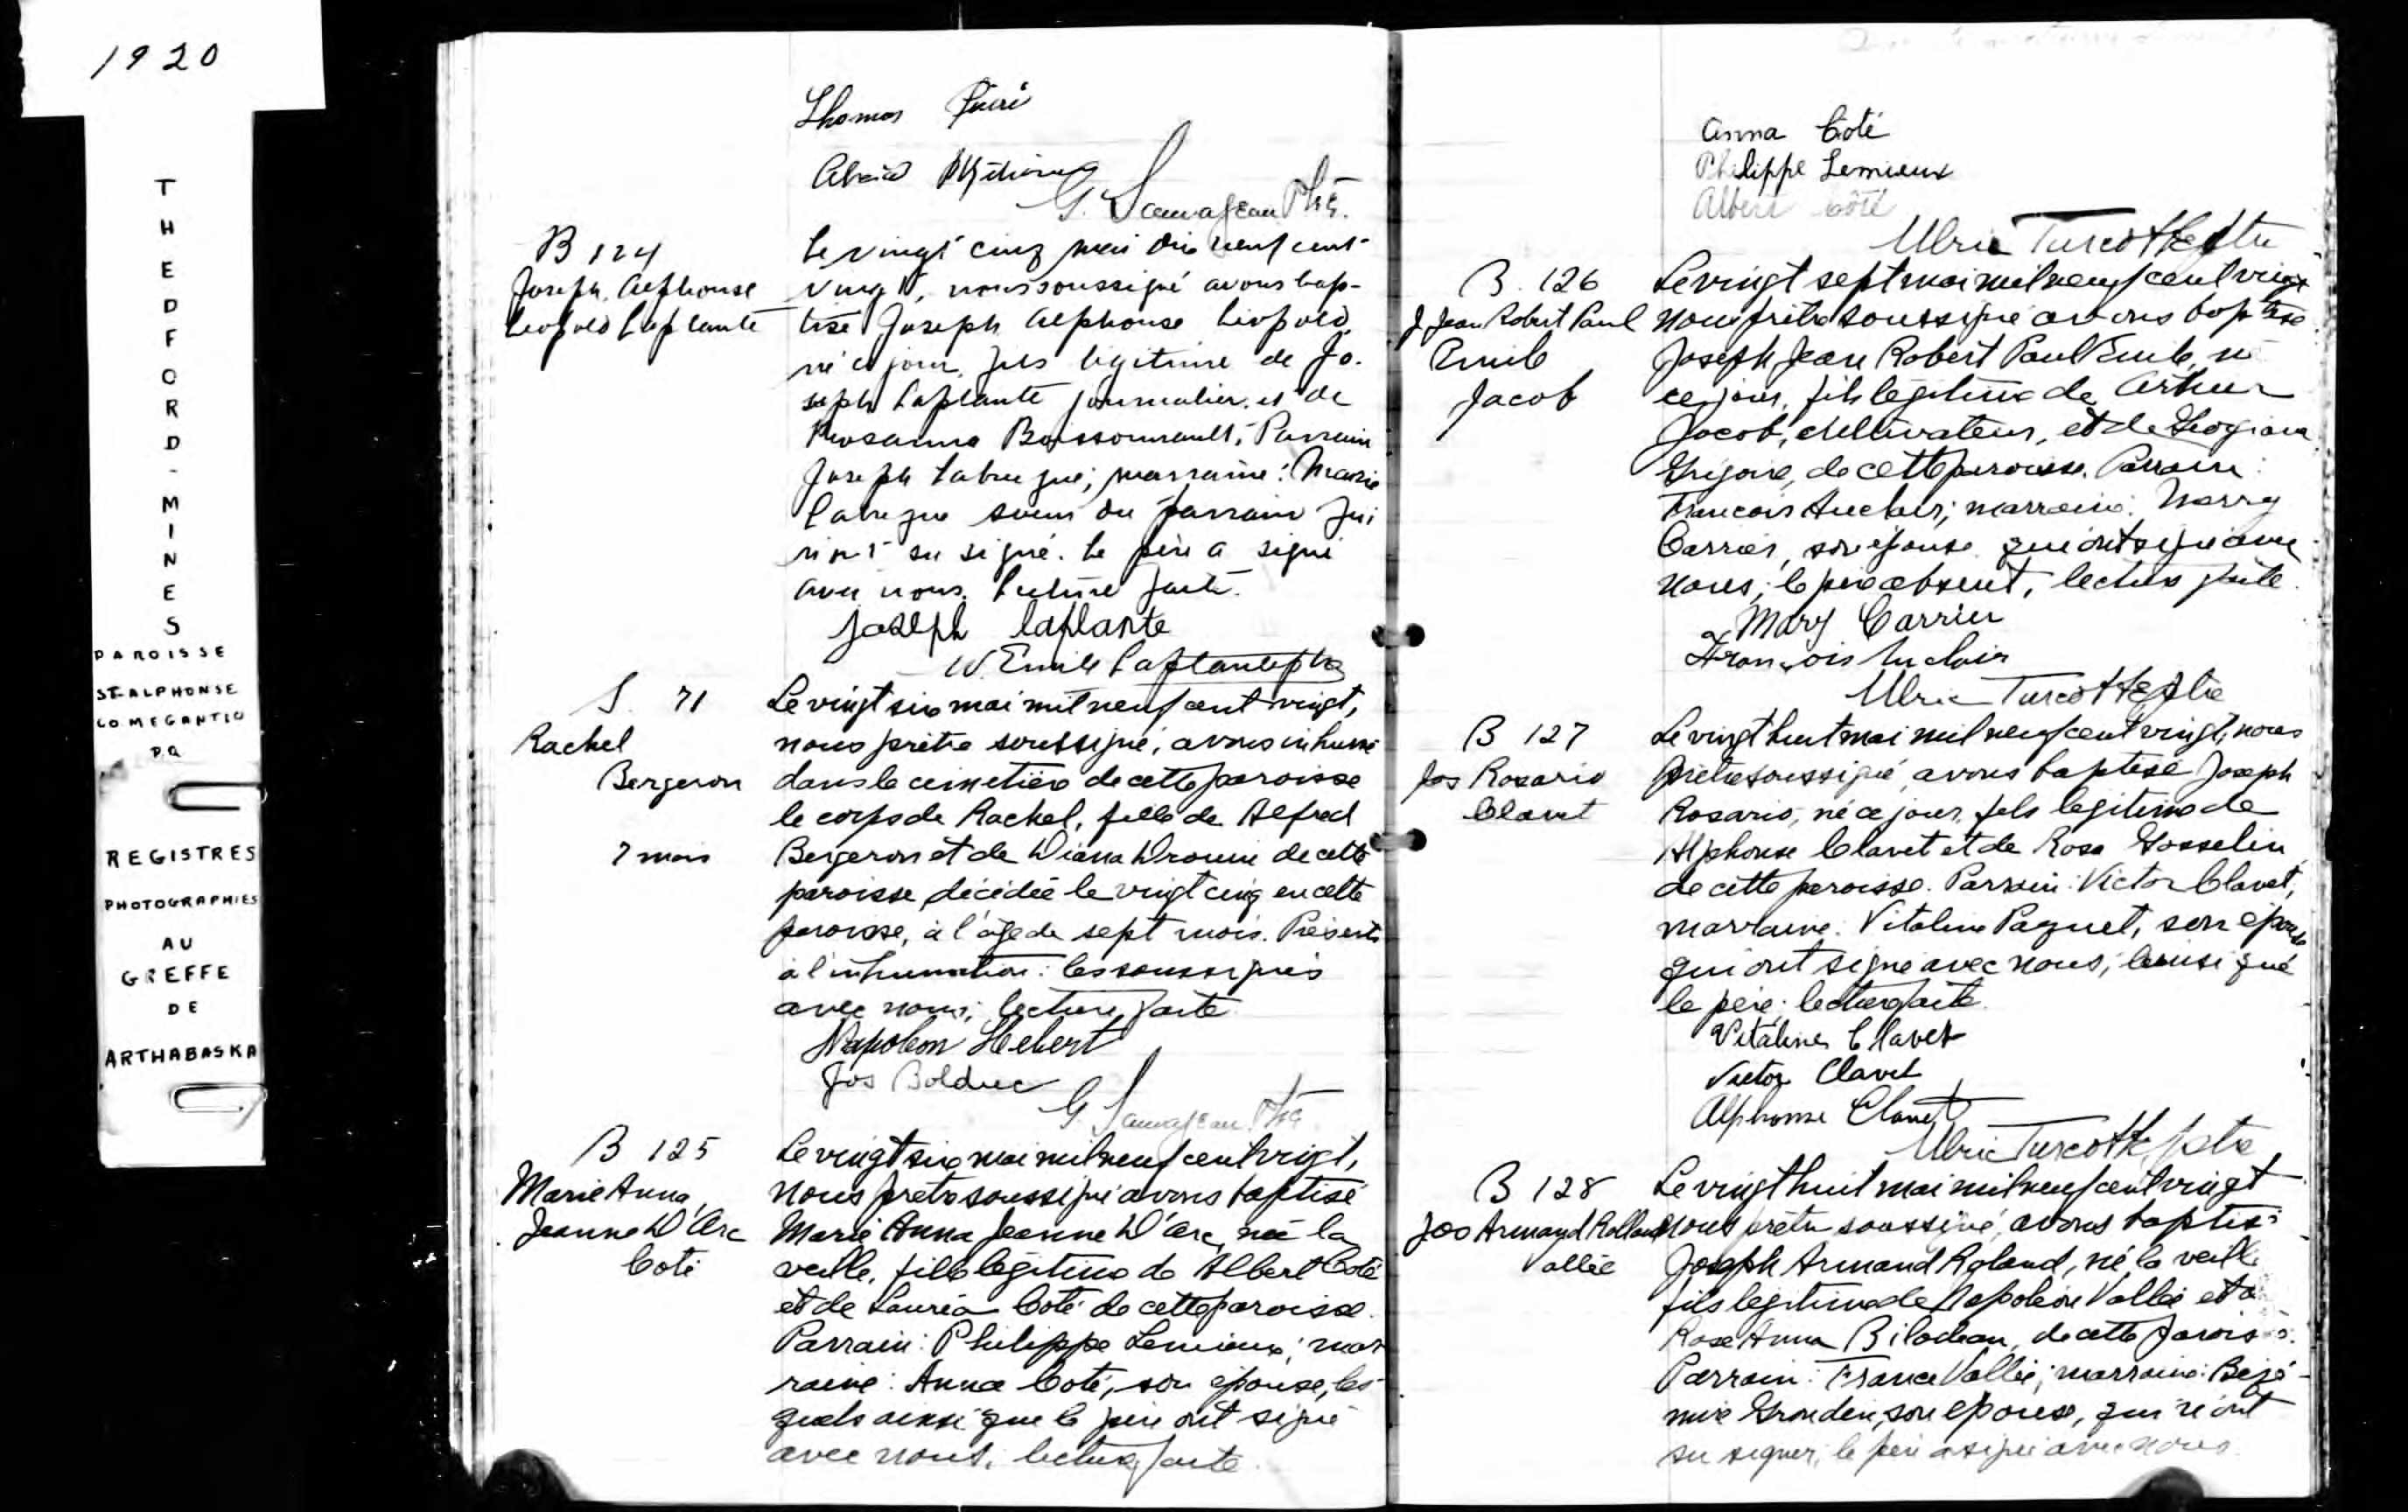 1920
THEDFORD-MINES
PAROISSE
ST-ALPHONSE
CO MEGANTIC
P.Q
REGISTRES
PHOTOGRAPHIES
AU
GREFFE
DE
ARTHABASKA
Thomas
G. Sauvageau Ptre.
B 124
Joseph Alphonse
Leopold Laplante
Le vingt cinq mai dix neuf cent
vingt, nous soussigné avons bap-
tisé Joseph Alphonse Léopold,
né ce jour, fils légitime de Jo-
seph Laplante journalier et de
Rosanna Boissonnault. Parrain
Joseph Labrecque; marraine: Marie
Labrecque soeur du parrain qui
n'ont su signé. Le père a signé
avec nous. Lecture faite.
Joseph laplante
W. Emile Laplante ptre
S. 71
Rachel
Bergeron
7 mois
Le vingt six mai mil neuf cent vingt,
nous prêtre soussigné, avons inhumé
dans le cimetière de cette paroisse
le corps de Rachel, fille de Alfred
Bergeron et de Diana Drouin de cette
paroisse, décédée le vingt cinq en cette
paroisse, à l'âge de sept mois. Présents
à l'inhumation: les soussignés
avec nous; lecture faite
Napoleon Hebert
Jos Bolduc
G. Sauvageau Ptre
B 125
Marie Anna,
Jeanne D'Arc
Coté
Le vingt six mai mil neuf cent vingt,
nous prêtre soussigné avons baptisé
Marie Anna Jeanne D'Arc, née la
veille, fille légitime de Albert Coté
et de Lauréa Coté de cette paroisse.
Parrain: Philippe Lemieux; mar
raine: Anna Coté, son épouse, les
quels ainsi que le père ont signé
avec nous; lecture faite.
Anna Coté
Philippe Lemieux
Albert Côté
Ulric Turcotte ptre
B. 126
J Jean Robert Paul
Emile
Jacob
Le vingt sept mai mil neuf cent vingt
nous prêtre soussigné avons baptisé
Joseph Jean Robert Paul Emile, né
ce jour, fils légitime de Arthur
Jacob, cultivateur, et de Georgiana
Grégoire, de cette paroisse. Parrain:
Francois Auclair; marraine: Marry
Carrier, son épouse qui ont signé avec
nous; le père absent, lecture faite.
Mary Carrier
François Auclair
Ulric Turcotte Ptre
B 127
Jos Rosario
Clavet
Le vingt huit mai mil neuf cent vingt, nous
prêtre soussigné, avons baptisé Joseph
Rosario, né ce jour, fils légitime de
Alphonse Clavet et de Rose Gosselin
de cette paroisse. Parrain: Victor Clavet,
marraine: Vitaline Paquet, son épouse
qui ont signé avec nous, ainsi que
le père; lecture faite.
Vitaline Clavet
Victor Clavet
Alphonse Clavet
Ulric Turcotte, ptre
B 128
Jos Armand Rolland
Vallée
Le vingt huit mai mil neuf cent vingt
nous prêtre soussigné, avons baptisé
Joseph Armand Roland, né la veille
fils légitime de Napoléon Vallée et de
Rose Anna Bilodeau, de cette paroisse.
Parrain: France Vallée; marraine:
Grondin, son épouse, qui n'ont
su signer; le père a signé avec nous